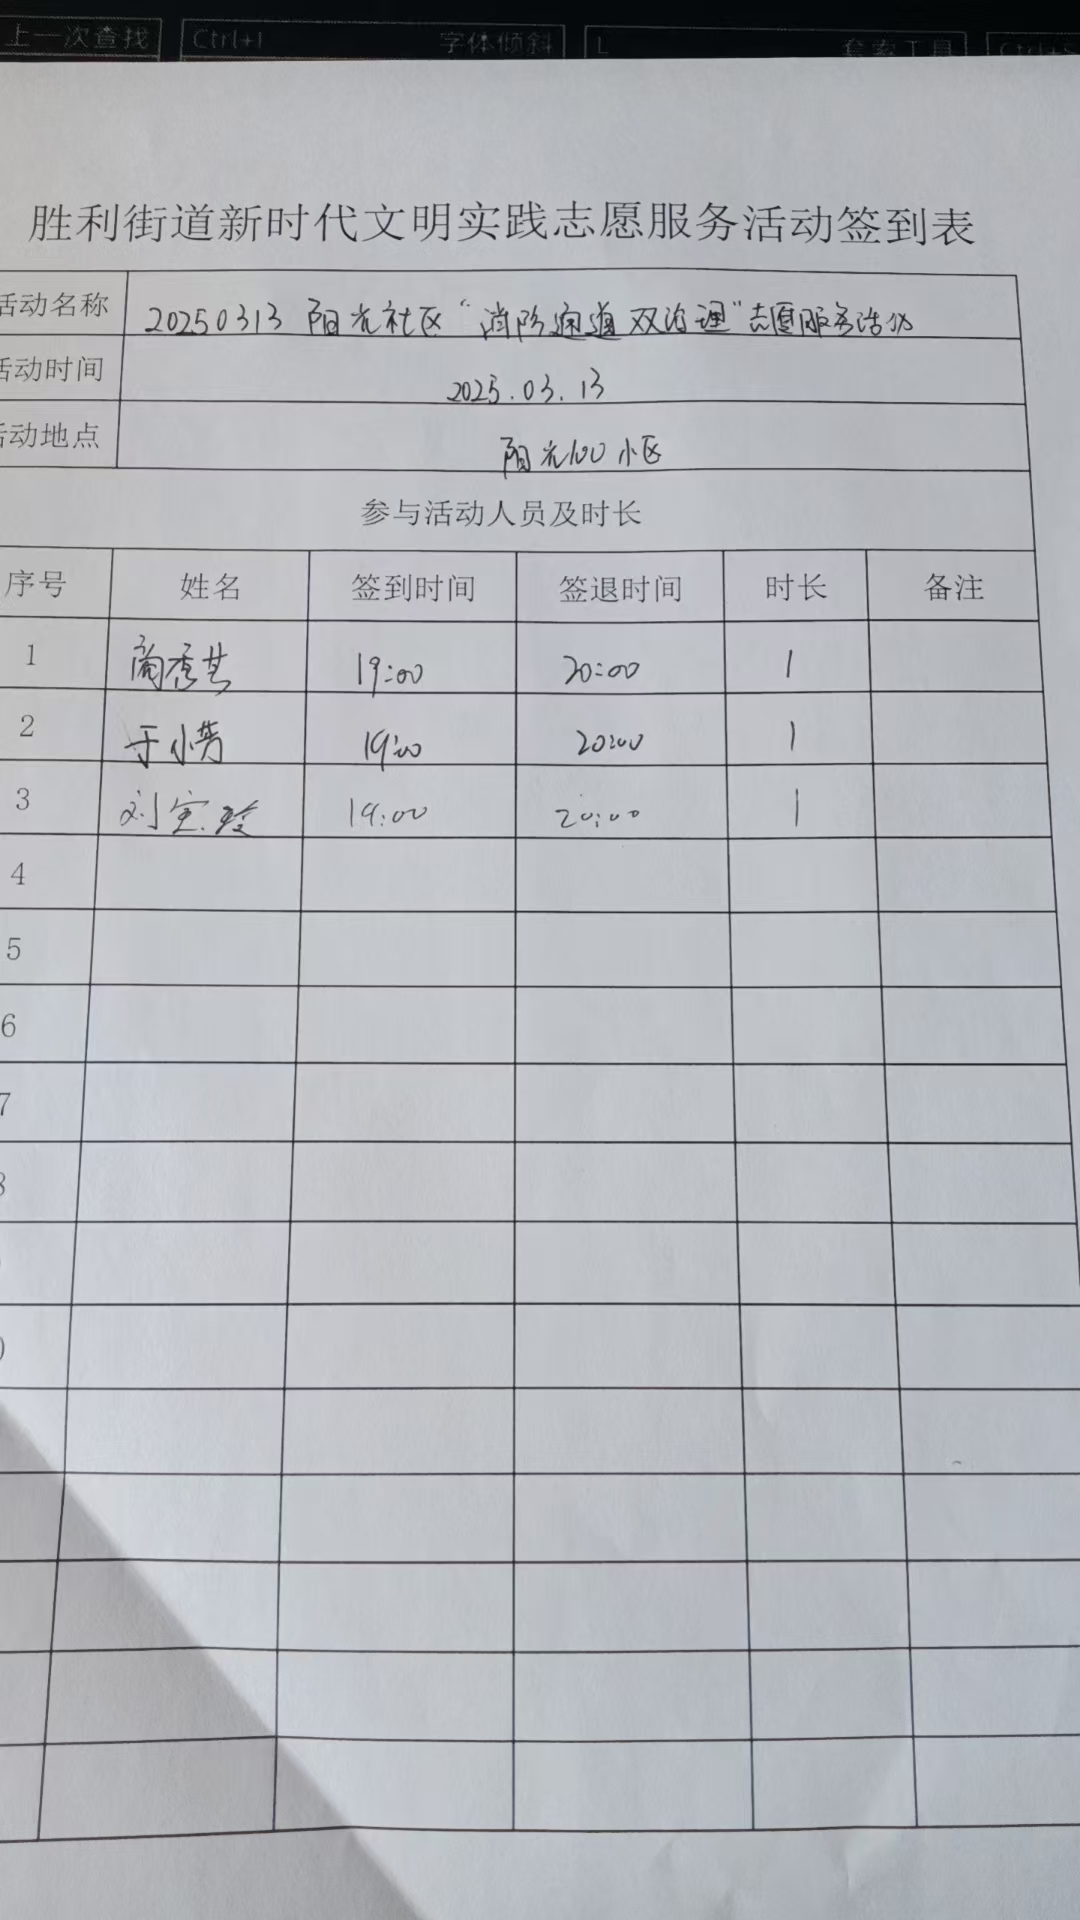 上一次查找 Ctrl+I 字体倾斜 L 套索工具
胜利街道新时代文明实践志愿服务活动签到表
活动名称 20250313 阳光社区“消防通道双治理”志愿服务活动
活动时间 2025.03.13
活动地点 阳光100小区
参与活动人员及时长
序号 姓名 签到时间 签退时间 时长 备注
1 19:00 20:00 1
2 于小芳 19:00 20:00 1
3 刘宝玲 19:00 20:00 1
4
5
6
7
8